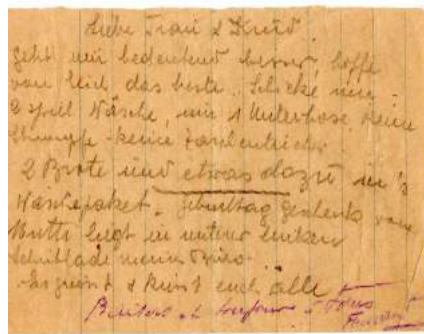 Liebe Frau & Kind.
geht mir bedeutend besser, hoffe
von Euch das beste. Schicke mir
2 spiel Wäsche, nur 1 Unterhose keine
Strümpfe - keine Taschentücher
2 Brote und etwas dazu in's
Wäschepaket. Geburtstag Geschenk von
Mutti liegt in unterer linken
Schublade meines Büros
Es grüsst & küsst euch alle
et toujours à